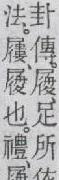 卦傳。履、足所依
法。屨、履也。禮、